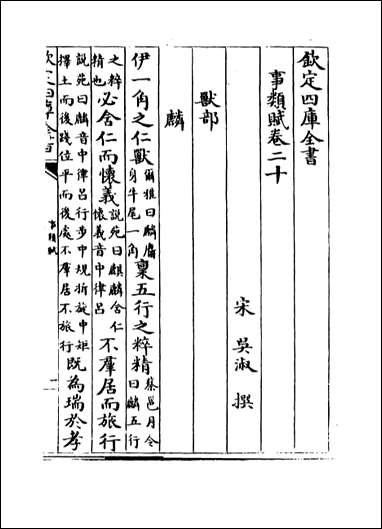 欽定四庫全書
事類賦卷二十
宋 吳淑 撰
獸部
麟
伊一角之仁獸爾雅曰麟麕身牛尾一角稟五行之粹精蔡邕月令曰麟五行
之粹精也必含仁而懷義說苑曰麒麟含仁懷義音中律呂不羣居而旅行
說苑曰麟音中律呂行步中規折旋中矩擇土而後踐位平而後處不羣居不旅行既為瑞於孝
欽定四庫全書
事類賦